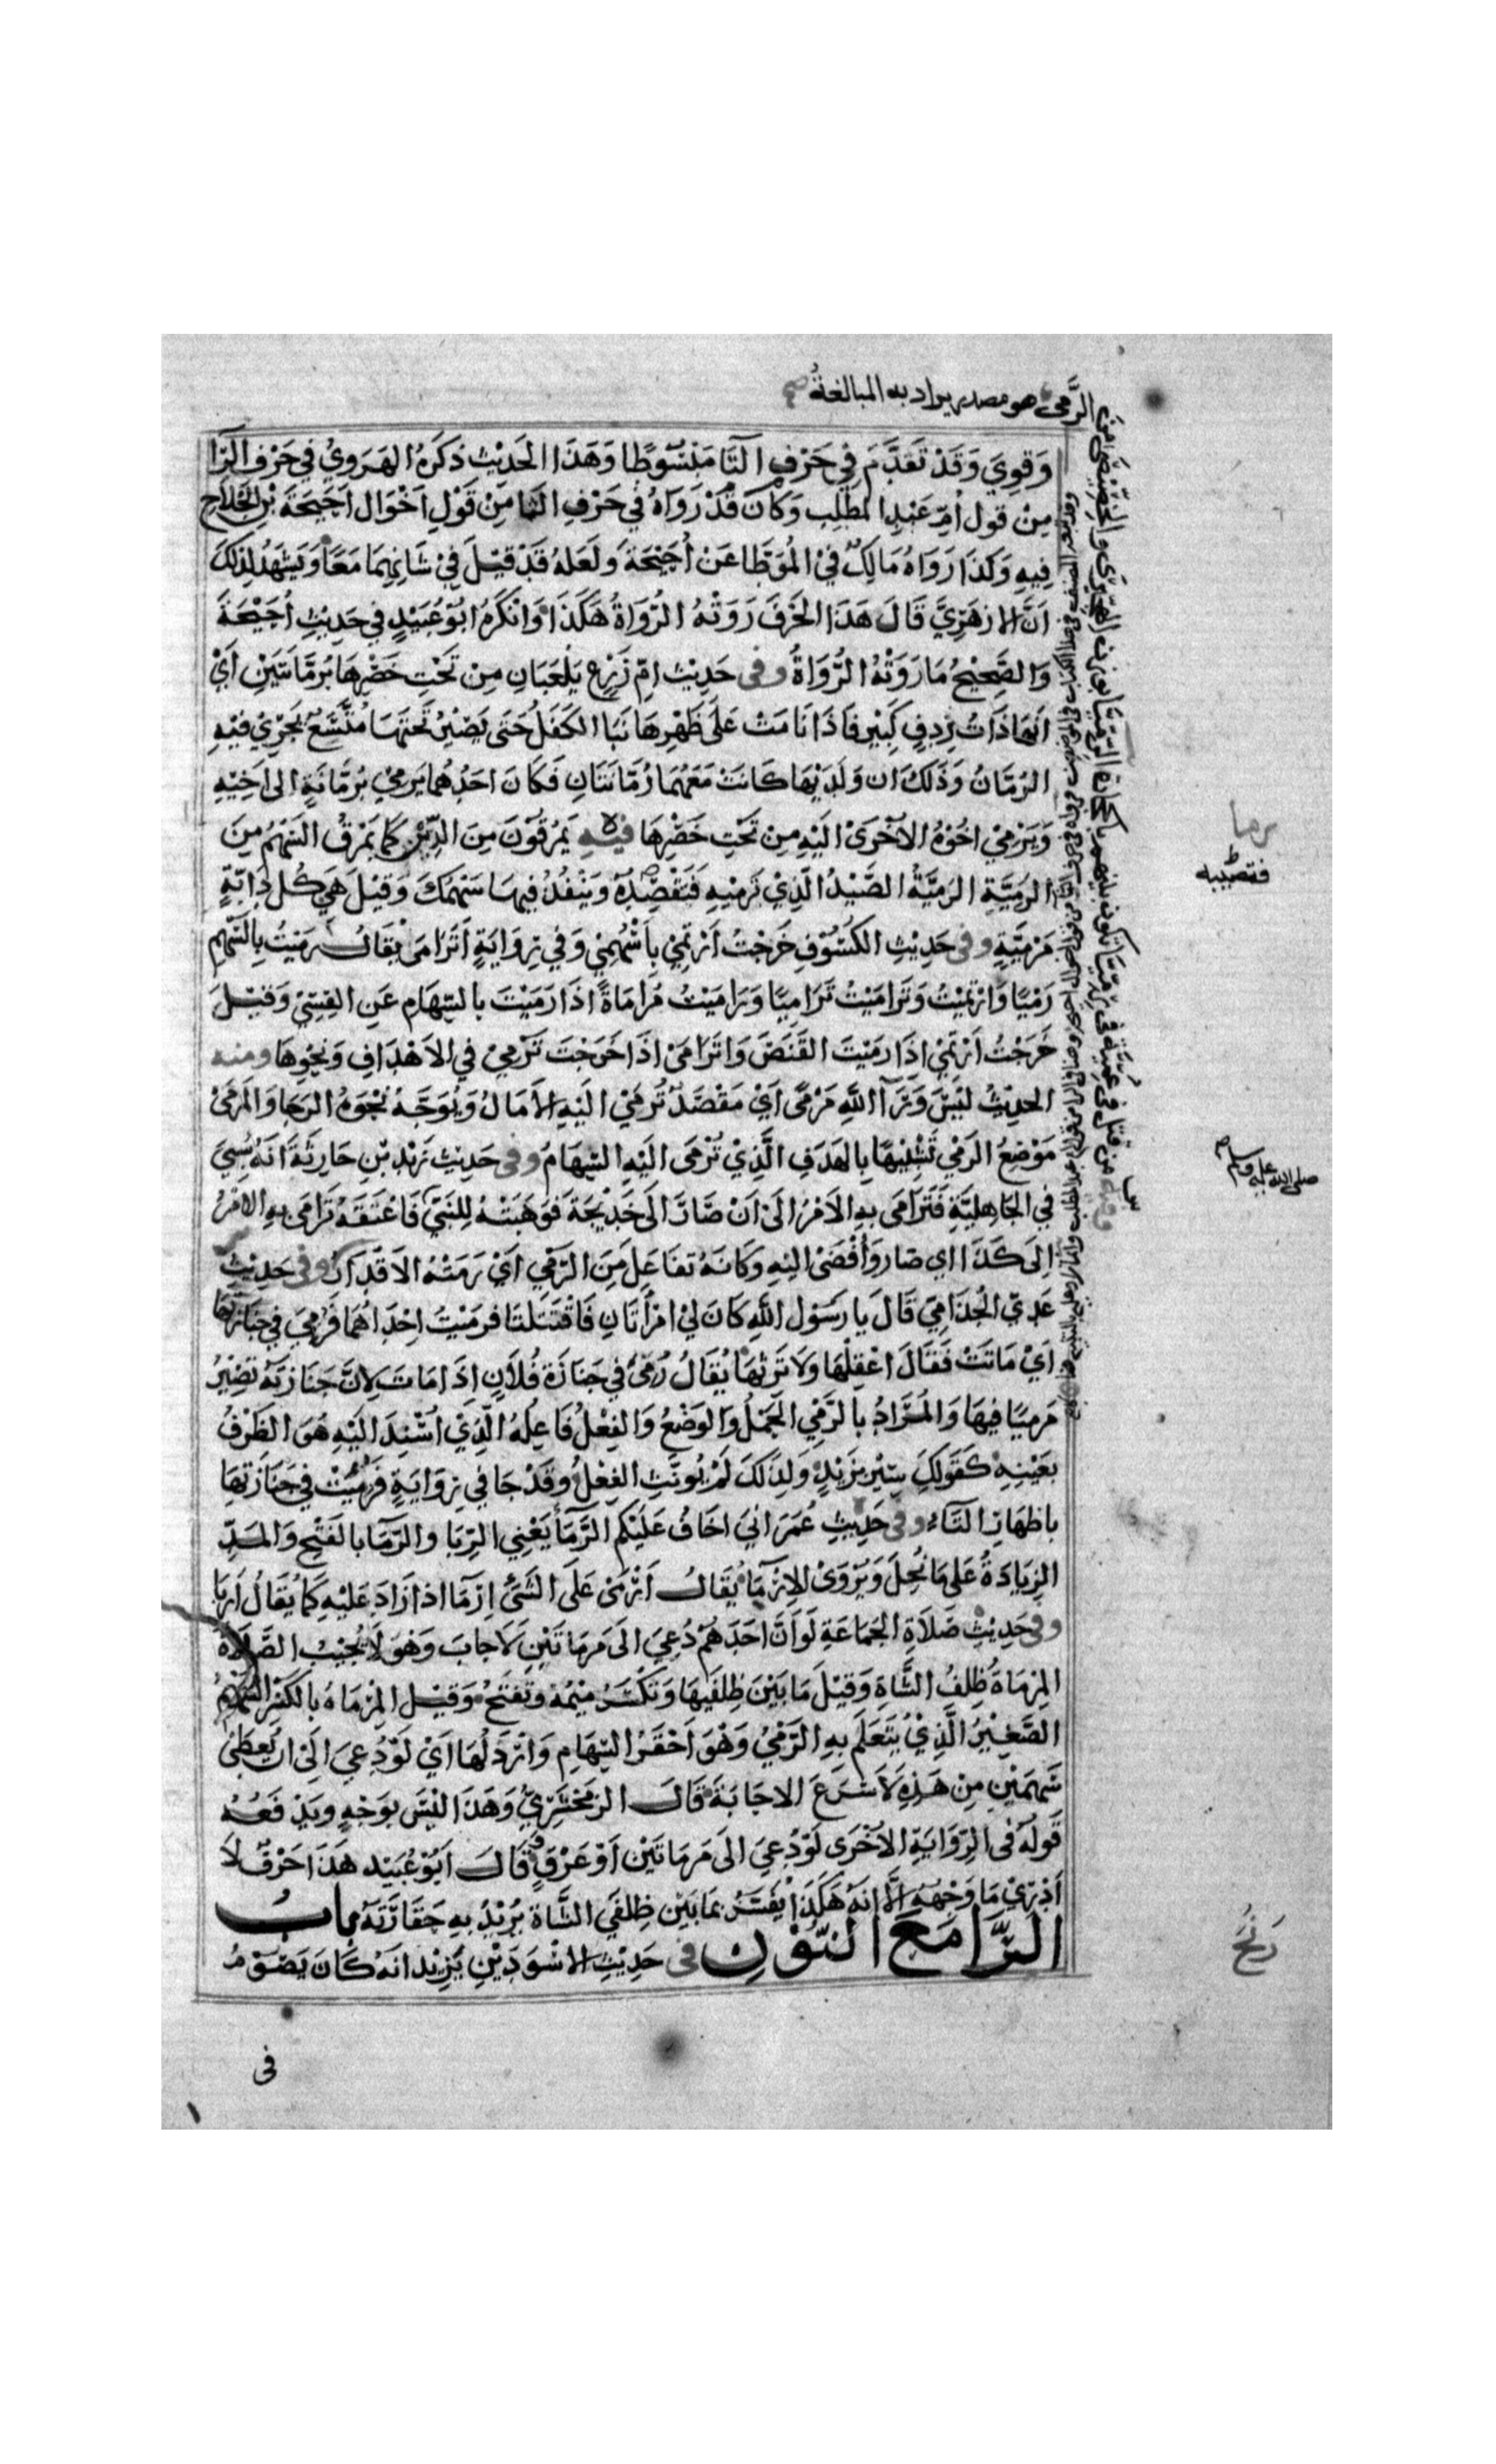 الرَّمي هو مصدر يراد به المبالغة صح
وَقوِيَ وَقَدْ تَقَدَّمَ فِي حَرْفِ الثَّا مَبْسُوطًا وَهَذَا الحَدِيْث ذكَرَهُ الهَرَوِيُّ فِي حَرْفِ الرَّا
مِنْ قول اُمِّ عَبْدِ المطَّلِب وَكَانَ قَدْ رَوَاهُ فِي حَرْفِ الثا مِنْ قَوْلِ اَخْوَال اُحَيْحَةَ بْنِ الجُلَاحِ
فِيهِ وَكَذَا رَوَاهُ مَالِكٌ فِيْ المُوَطَّا عَنْ اُحَيْحَةَ وَلَعَلهُ قَدْ قيْلَ فِيْ شَانِهِمَا مَعًا وَيَشهَدُ لِذَلكَ
اَنَّ الازهَرِيَّ قَالَ هَذَا الحَرْفَ رَوَتْهُ الرُّوَاةُ هَكَذَا وَانْكَرَهُ اَبُوْ عُبَيْدٍ فِي حَدِيْثِ اُحَيْحَةَ
وَالصَّحِيْحُ مَا رَوَتْهُ الرُّوَاةُ وفى حَدِيْث امِّ زَرْعٍ يَلْعَبَانِ مِنْ تَحْتِ خَصْرِهَا بُرمَّانَتَيْنِ اَيْ
انهَا ذَاتُ رِدفٍ كَبِيْر فَاذَا نَامَتْ عَلَى ظَهْرِهَا نَبَا الكَفَلُ حَتَى يَصِيْرُ تَحْتَهَا مُتَّسَعٌ يَجْرِيْ فيْهِ
الرُمَّانُ وَذَلكَ ان وَلَدَيْهَا كَانَتْ مَعَهُمَا رُمَّانَتَانِ فَكَانَ احَدُهُمَا يَرميْ بُرمَّانَةٍ الى اَخِيْهِ
وَيَرْمِيْ اخُوْهُ الاُخْرَىْ اليْهِ مِنْ تَحْتِ خَصْرِهَا فيْهِ يَمرُقُوْنَ مِنَ الدِّيْنِ كَمَا يَمْرقُ السَّهْمُ مِنَ
الرَمِيَّةِ الرَمِيَّةُ الصَّيْدُ الَّذِيْ تَرمِيْهِ فَتَقْصِدُهُ وَيَنْفُذُ فِيهَا سَهْمُكَ وَقيْلَ هِيَ كُل دَابَّةٍ
مَرْمِيَّةٍ وفى حَدِيْثِ الكُسُوْفِ خَرَجْتُ اَرْتَمِيْ بِاَسْهُمِيْ وَفي رِوَايَةٍ اَتَرَامَى يُقَالُ رَمَيْتُ بِالسَّهْمِ
رَمْيًا وَارْتَمَيْتُ وَتَرَامَيْتُ تَرَامِيًا وَرَامَيْتُ مُرَامَاةً اذَا رَمَيْتَ بالسّهَامِ عَنِ القِسِيّ وَقيْلَ
خَرَجْتُ اَرْتَمِيْ اذَا رَمَيْتَ القَنَصَ وَاتَرَامَىْ اذَا خَرَجْتَ تَرْمِيْ فِي الاَهْدَافِ وَنَحْوِهَا ومنه
الحدِيْثُ ليْسَ وَرَآ اللّهِ مَرْمًى اَيْ مَقْصَدٌ تُرمَىْ اليْهِ الاَمَالُ وَيُوَجَّهُ نَحْوَهُ الرَجا وَالمَرْمَىْ
مَوْضِعُ الرَمْي تَشْبِيْهًا بِالهَدَفِ الَّذِيْ تُرْمَى الَيْهِ السِّهَامُ وفى حَدِيْثِ زَيْدِ بْنِ حَارِثَةَ انَهُ سُبِيَ
فِي الجَاهِليَّةِ فَتَرَامَى بهِ الاَمْرُ الَى اَنْ صَارَ الَى خَدِيْجَةَ فَوَهَبَتْهُ لِلنَّبِيِّ فَاعْتَقَهُ تَرَامَى بهِ الامْرُ
اِلَى كَذَا اي صَار وَاَفْضَىْ اليْهِ وَكَانَهُ تفَاعَلَ مِنَ الرَّمْيِ اَيْ رَمَتْهُ الاَقْدَارُ وفى حَدِيْثِ
عَدِيّ الجُذَامِيّ قَالَ يا رَسُوْل اللّهِ كَانَ لِيْ امْرَأتَانِ فَاقْتَتَلتَا فرَمَيْتُ اِحْدَاهُمَا فَرُمِيَ فِي جَنَازَتِهَا
اَيْ مَاتَتْ فَقَالَ اعْقِلْهَا وَلَا تَرثْهَا يُقَالُ رُمِيَ فِي جَنَازَة فُلَانٍ اِذَا مَاتَ لاِنَّ جَنَازَتَهُ تَصِيْرُ
مَرمِيًّا فِيهَا وَالمُرَادُ بِالرَّمْي الحَمْلُ وَالوَضْعُ وَالفِعْلُ فَاعِلُهُ الَّذِيْ اُسْنِدَ الَيْهِ هُوَ الظَّرْفُ
بعَيْنِهِ كَقَولِكَ سِيْرَ بِزَيْدٍ وَلِذَلكَ لَمْ يُونَّثِ الفِعْلُ وقَدْ جَا فِي رِوَايَةٍ فَرُمِيَتْ فِي جَنَازَتِهَا
باظهَارِ التَاءِ وفى حَدِيْثِ عُمَرَ انِيَ اخَافُ عَلَيْكم الرَّمَآ يَعْنِي الرِّبَا وَالرّمَآ بالفَتْحِ وَالمَدِّ
الزِيَادَةُ عَلَى مَا يُحِلّ وَيُرْوَىْ الارْمَا يُقَالُ اَرْمَىْ عَلَى الشَّىْءِ اِرْمَا اذا زَادَ عَلَيْهِ كَمَا يُقَالُ اَربَا
وفى حَدِيْثِ صَلَاةِ الجَمَاعَةِ لَوْ اَنَّ احَدَهُمْ دُعِيَ الَى مَرمَاتَيْنِ لَاَجَابَ وَهْوَ لَا يُجِيْبُ الصَّلَاة
المِرْمَاةُ ظِلفُ الشَّاةِ وَقِيْلَ مَا بَيْنَ ظِلفَيهَا وَتكْسَرُ مِيْمُهُ وَتفتَحُ وَقيْل المِرْمَاةُ بالكَسْر السَّهْمُ
الصَّغِيْرُ الَّذِيْ يُتَعَلَّمُ بهِ الرَّمْيُ وَهْوَ اَحْقَرُ السِّهَامِ وَارْذَلُهَا اَيْ لَوْ دُعِيَ الَىْ ان يُعْطَىْ
سَهْمَيْنِ مِنْ هَذِهِ لَاَسْرَعَ الاجَابَةَ قَالَ الزَّمَخْشَرِيُّ وَهَذَا ليْسَ بوَجْهٍ وَيَدْفَعُهُ
قَولُهُ فِى الرِّوَايَةِ الاُخْرَى لَوْ دُعِيَ الَى مَرمَاتَيْنِ اَوْ عَرْقٍ وقَالَ اَبُوْ عُبَيْد هَذَا حَرْفٌ لَا
اَدْرِيْ مَا وَجْهُهُ الَّا انهُ هَكَذَا يُفَسَّرُ بمَا بَيْن ظِلفَي الشَّاة يُرِيْدُ بهِ حَقَارَتَهُ بابُ
الرَّا مَعَ النُّوْنِ فى حَدِيْثِ الاَسْوَدِ بْنِ يَزِيْد انهُ كَانَ يَصُوْمُ
يرما
صلى الله عليه وسلم
رَنَحَ
فى